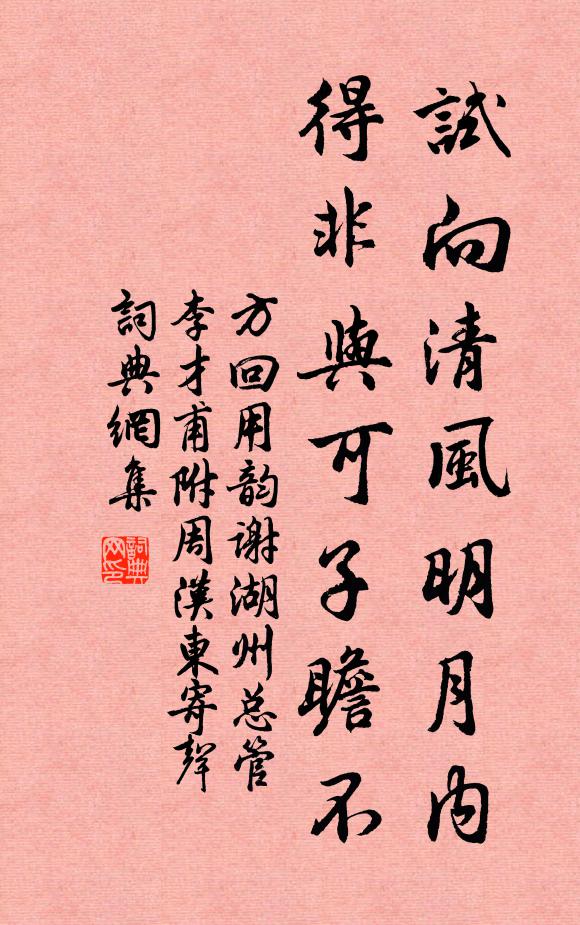 試向清風明月内
得非與可子瞻不
方回用韵谢湖州总管
李才甫附周漢東寄聲
詞典網集
詞典
网印